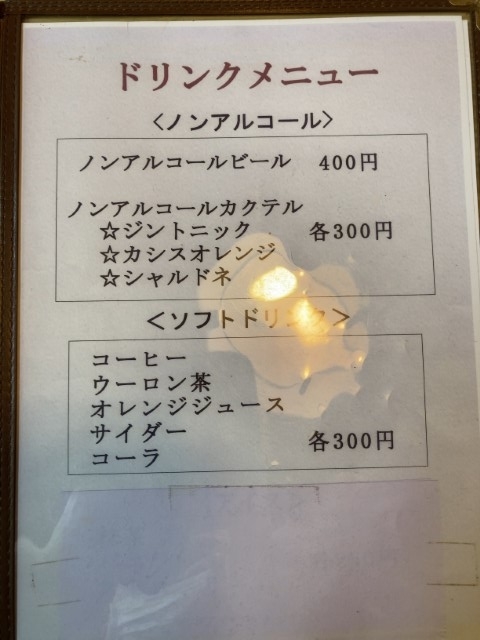 ドリンクメニュー
<ノンアルコール>
ノンアルコールビール 400円
ノンアルコールカクテル
☆ジントニック 各300円
☆カシスオレンジ
☆シャルドネ
<ソフトドリンク>
コーヒー
ウーロン茶
オレンジジュース
サイダー 各300円
コーラ